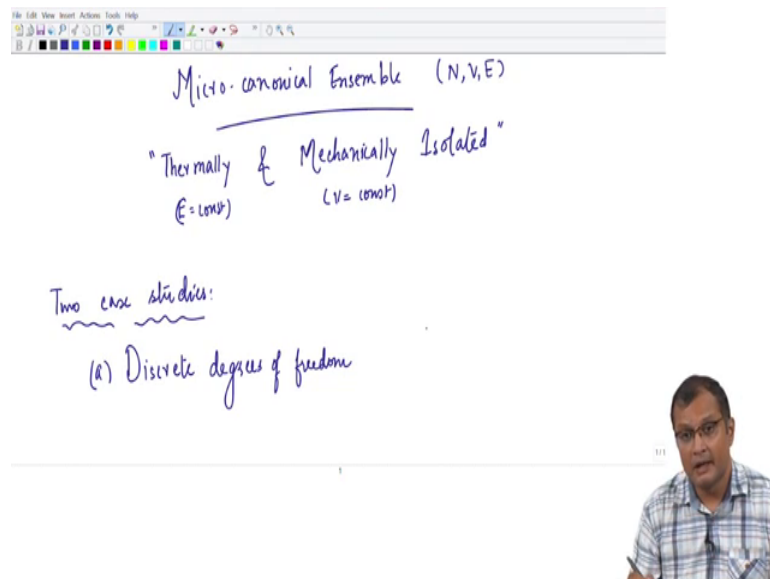 File Edit View Insert Actions Tools Help
Micro-canonical Ensemble (N, V, E)
"Thermally & Mechanically Isolated"
(E = const) (V = const)
Two case studies:
(a) Discrete degrees of freedom
1/1
1